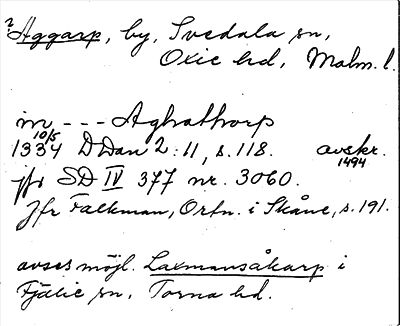 ²Aggarp, by, Svedala sn,
Oxie hd, Malm. l.
in --- Aghathorp
10/5
1334 DDan 2:11, s. 118. avskr. 1494
jfr SD IV 377 nr. 3060.
Jfr Falkman, Ortn. i Skåne, s. 191.
avses möjl. Laxmansåkarp i
Fjälie sn, Torna hd.